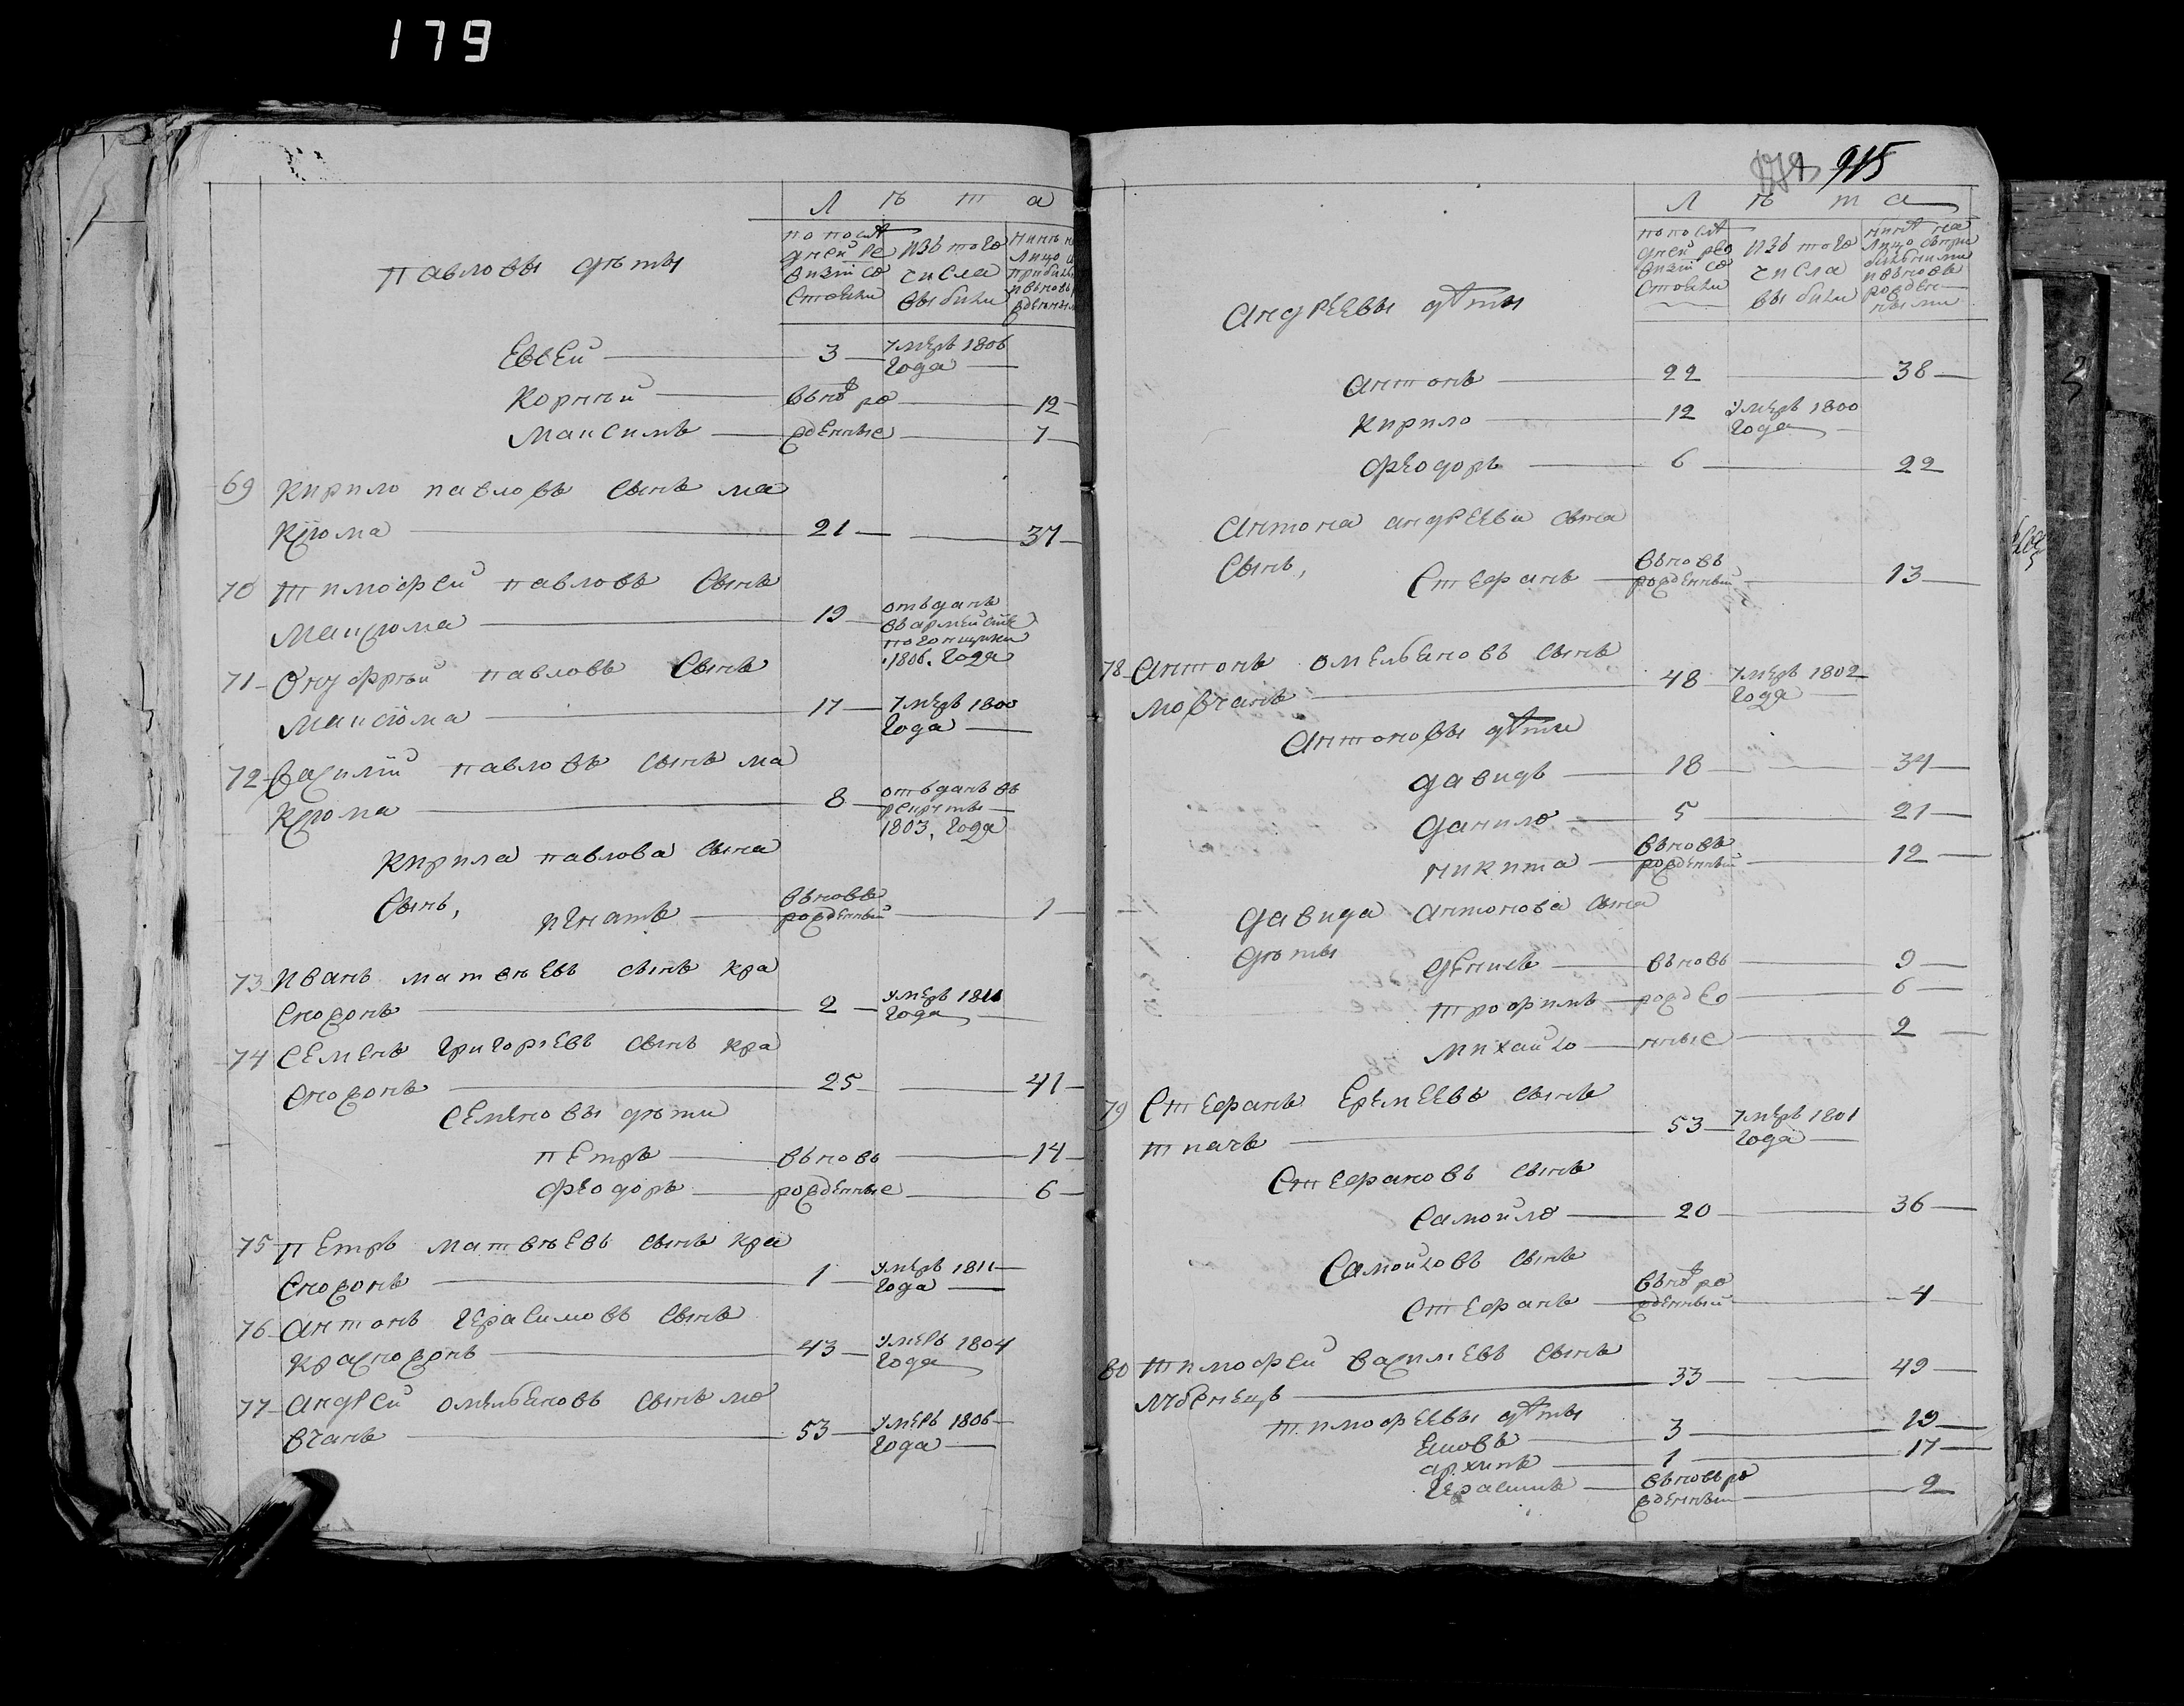 179
Л ѣ т а
по послѣ
дней ре
визіи со
стояли
изъ того
числа
выбыли
Павловы дѣти
Евсей 3 умеръ 1806
года
Корнѣй вьновь ро 12
Максимъ жденные 7
69 Кирило Павловъ сынъ Ма
кѹома 21 37
70 Тимофей Павловъ сынъ
19 отъданъ
въ армейские
погонщики
1806. года
71 Онуфрѣй Павловъ сынъ
17 умеръ 1800
года
72 Василий Павловъ сынъ Ма
8 отъданъ въ
рекруты
1803. года
Кирила Павлова сына
сынъ, Игнатъ вьновь
рожденный 1
73 Иванъ Матвѣевъ сынъ Кра
сножонъ 2 умеръ 1811
года
74 Семенъ Григорьевъ сынъ Кра
сножонъ 25 41
Семеновы дѣти
Петръ вьновь 14
Феодоръ рожденные 6
75 Петръ Матвѣевъ сынъ Кра
сножонъ 1 умеръ 1811
года
76 Антонъ Герасимовъ сынъ
Красножонъ 43 умеръ 1804
года
77 Андрей Омельяновъ сынъ Мо
вчанъ 53 умеръ 1806
года
915
Л ѣ т а
по послѣ
дней ре
визіи со
стояли
изъ того
числа
выбыли
нынѣ на
лицо съ при
былыми
и вьновь
рожден
ными
Андреевы дѣти
Антонъ 22 38
Кирило 12 умеръ 1800
года
Феодоръ 6 22
Антона Андреева сына
сынъ, Стефанъ вьновь
рожденный 13
78 Антонъ Омельяновъ сынъ
Мовчанъ 48 умеръ 1802
года
Антоновы дѣти
Давидъ 18 34
Данило 5 21
Никита вьновь
рожденный 12
Давида Антонова сына
дѣти Денисъ вьновь 9
Трофимъ рожде 6
Михайло нные 2
79 Стефанъ Еремеевъ сынъ
Ткачъ 53 умеръ 1801
года
Стефановъ сынъ
Самойло 20 36
Самойловъ сынъ
Стефанъ вьновь ро
жденный 4
80 Тимофей Васильевъ сынъ
33 49
Тимофеевы дѣти
Яковъ 3 19
Архипъ 1 17
Герасимъ вьновь ро
жденный 2